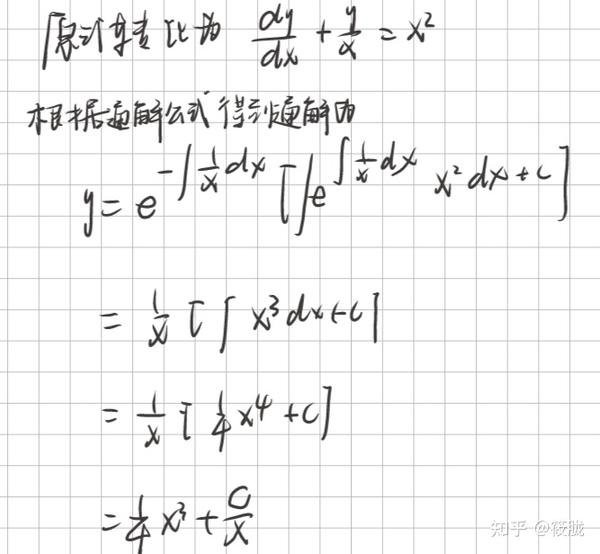 原式转化为 dy/dx + y/x = x²
根据通解公式得到通解为
y = e^(-∫1/x dx) [∫e^(∫1/x dx) x² dx + c]
= 1/x [∫ x³ dx + c]
= 1/x [1/4 x⁴ + c]
= 1/4 x³ + C/x
知乎 @筱胧